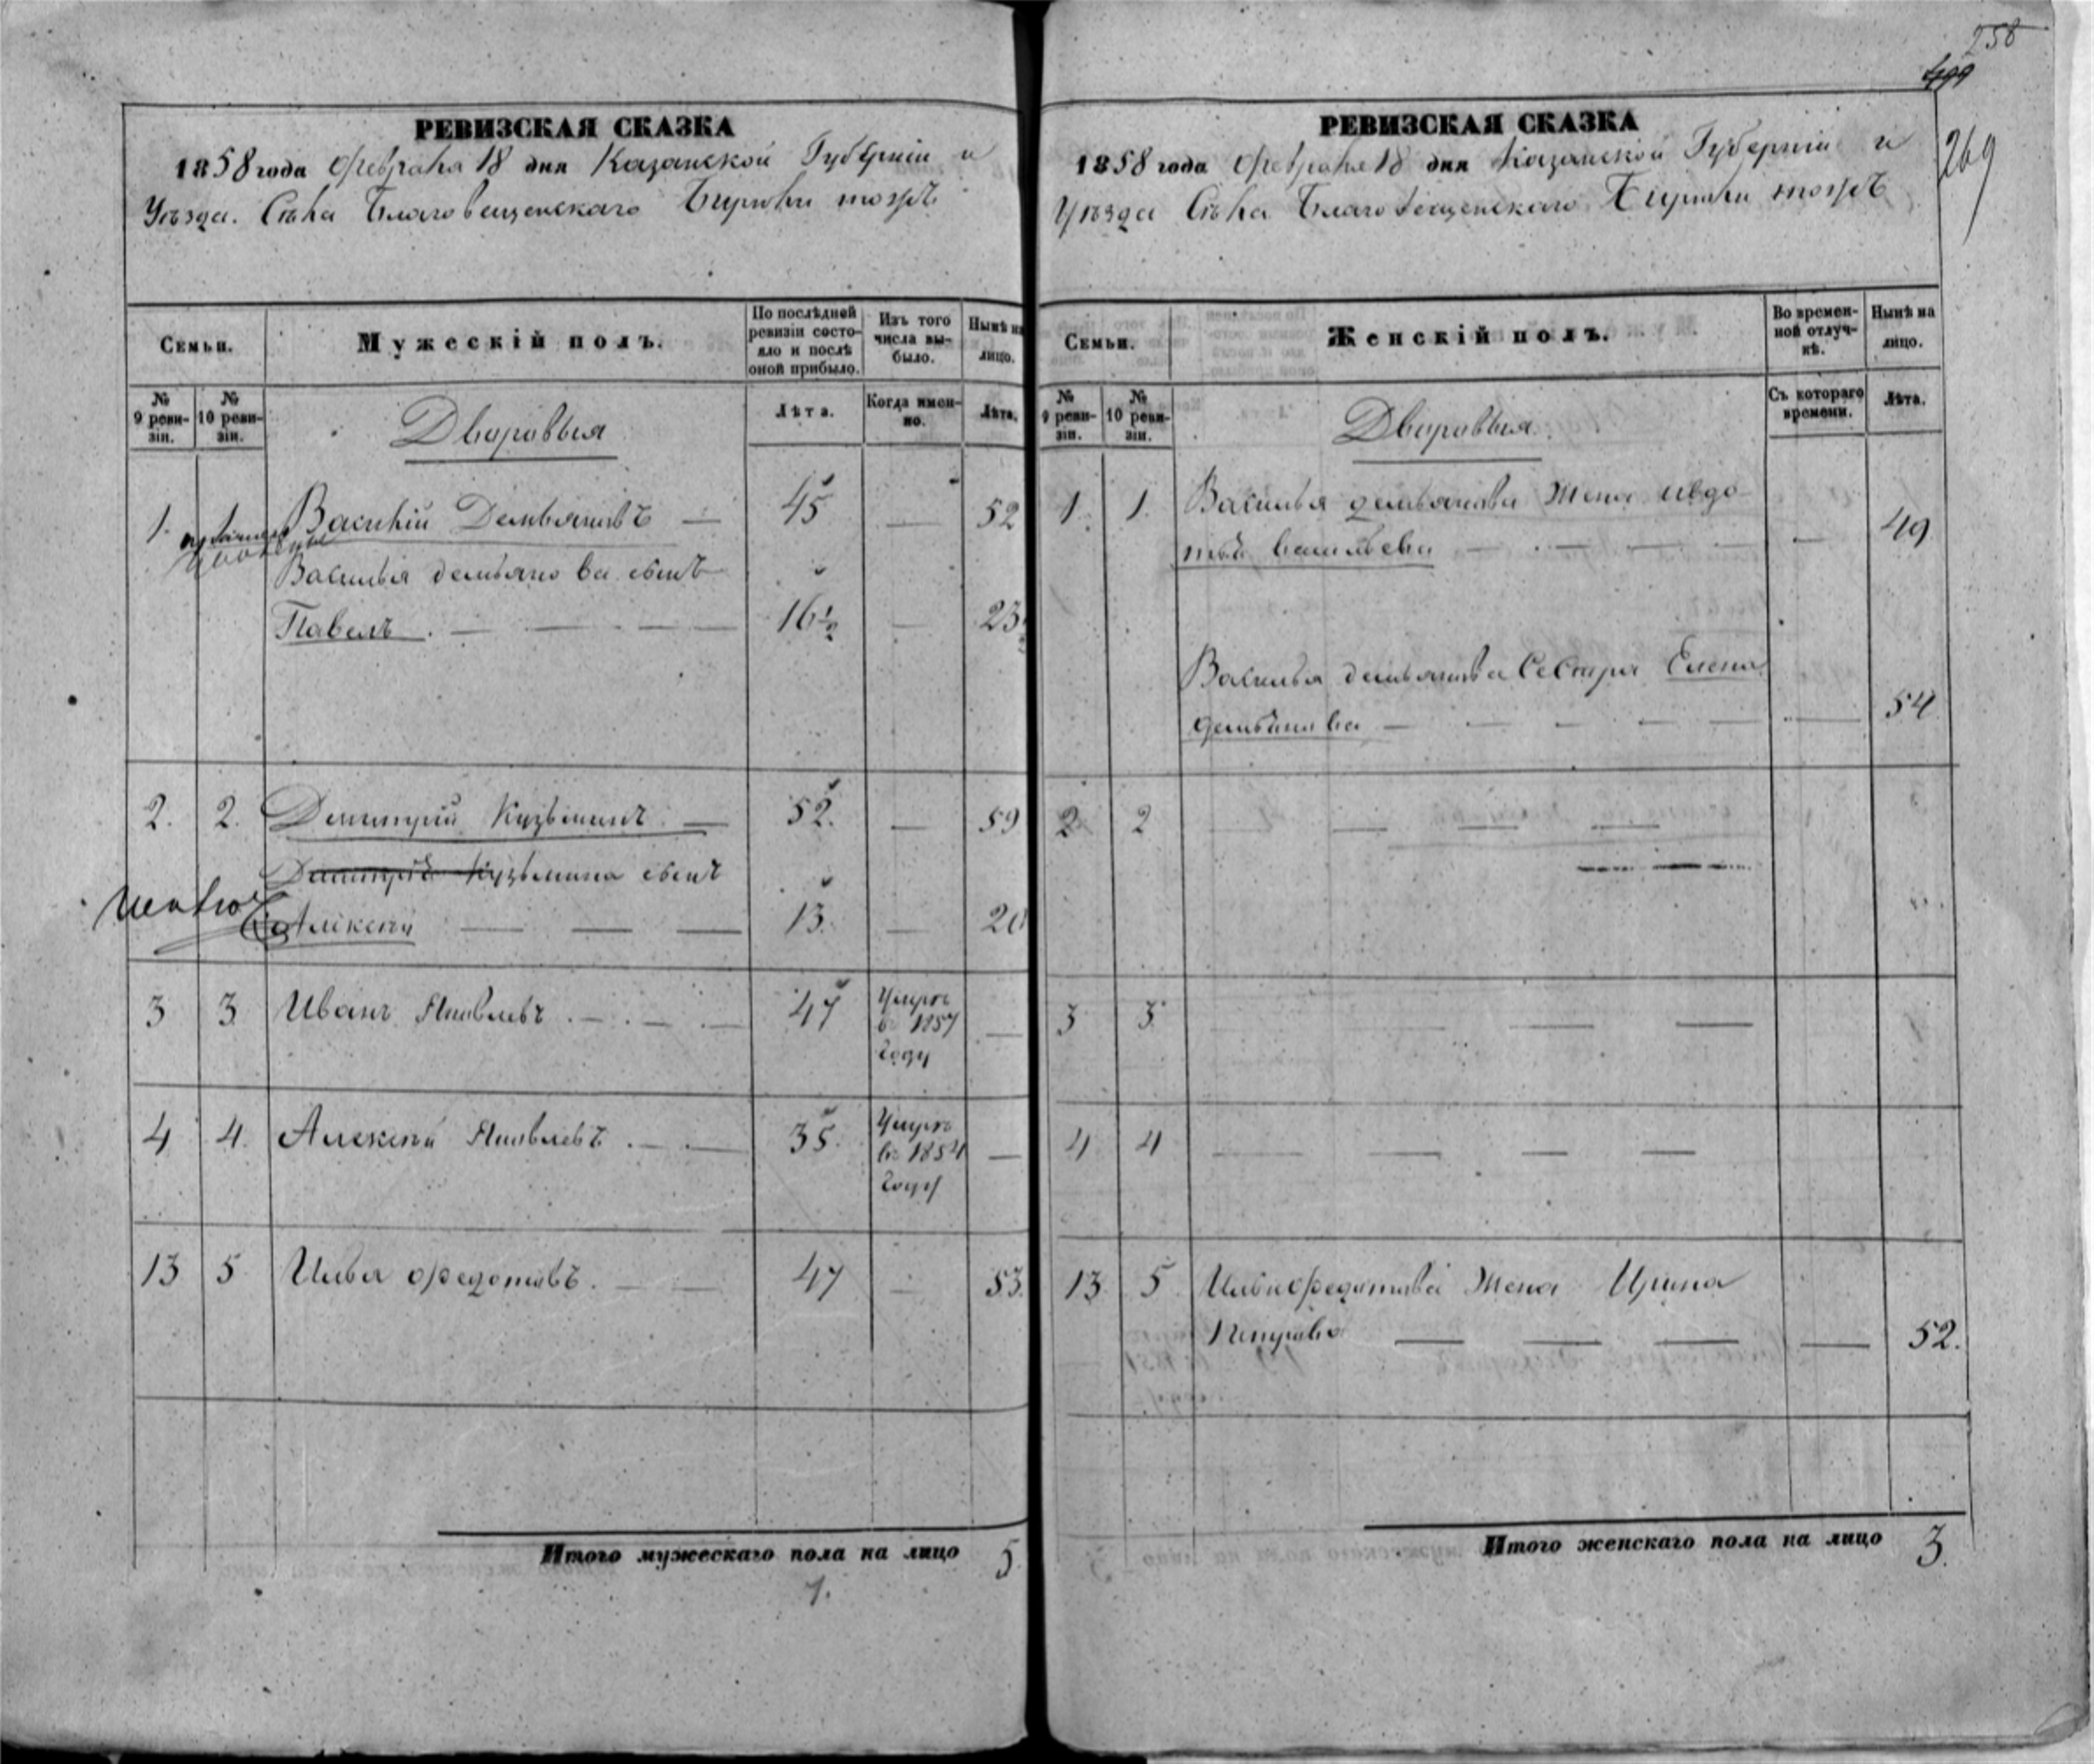 258
499
269
РЕВИЗСКАЯ СКАЗКА
1858 года Февраля 18 дня Казанской Губерніи и
Уѣзда. Села Благовещенскаго Бирюли тожъ
Семьи.
Мужескій полъ.
По послѣдней ревизіи состояло и послѣ оной прибыло.
Изъ того числа выбыло.
Нынѣ на лицо.
№ 9 ревизіи.
№ 10 ревизіи.
Лѣта.
Когда именно.
Лѣта.
Дворовыя
1. 1 Василій Демьяновъ — 45 — 52
Василья демьянова сынъ
Павелъ. — — — 16½ — 23½
2. 2. Дмитрій Кузьминъ. — 52. — 59
Дмитрія Кузьмина сынъ
Алексѣй — — — 13. — 20
3 3 Иванъ Яковлевъ . — . — . — 47 Умре въ 1857 году —
4 4. Алексѣй Яковлевъ . — . — 35. Умре въ 1854 году —
13 5 Илья Федотовъ. — — 47 — 53.
Итого мужескаго пола на лицо 5.
РЕВИЗСКАЯ СКАЗКА
1858 года Февраля 18 дня Казанской Губерніи и
Уѣзда Села Благовещенскаго Бирюли тожъ
Семьи.
Женскій полъ.
Во временной отлучкѣ.
Нынѣ на лицо.
№ 9 ревизіи.
№ 10 ревизіи.
Съ котораго времени.
Лѣта.
Дворовыя.
1. 1. Василья демьянова Жена Авдо-
тья васильева — — — — — 49
Василья демьянова Сестра Елена
демьянова — — — — — — 54
2 2 — — — —
3 3 — — —
4 4 — — — —
13 5 Ильи Федотова Жена Ирина
Петрова — — — — 52.
Итого женскаго пола на лицо 3.